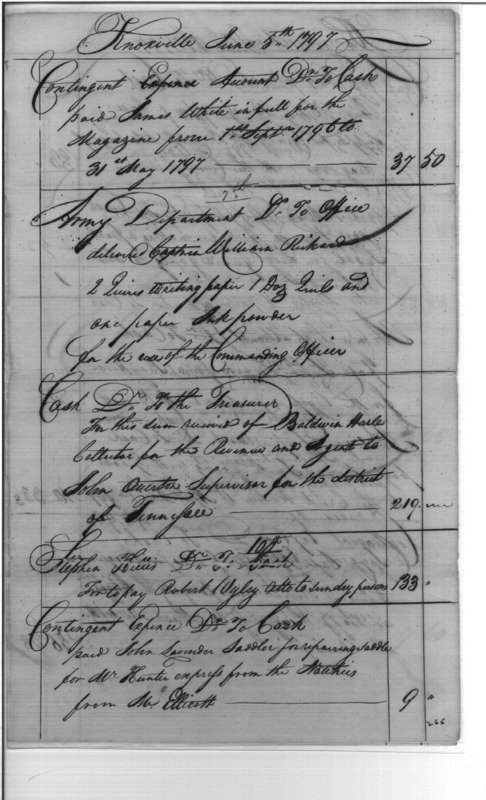 Knoxville June 5th 1797
Contingent Expence Account Dr. To Cash
paid James White in full for the
Magazine from 1st Septr 1796 to
31st May 1797 37 50
7th
Army Department Dr. To Office
deliverd Captain William Rickard
2 Quires writing paper 1 Doz Quils and
one paper Ink powder
for the use of the Commanding Officer
Cash Dr. To the Treasurer
For this sum received of Baldwin Harle
Collector for the Revenue and Agent to
John Overton Supervisor for the district
of Tennessee 219
10th
Stephen Dr. To
For to pay Robert to sunday persons 133 "
Contingent Expence Dr. To Cash
paid John Saunder Saddler for repairing saddle
for Mr. Hunter express from the Natches
from Mr. Ellicott 9 "
266